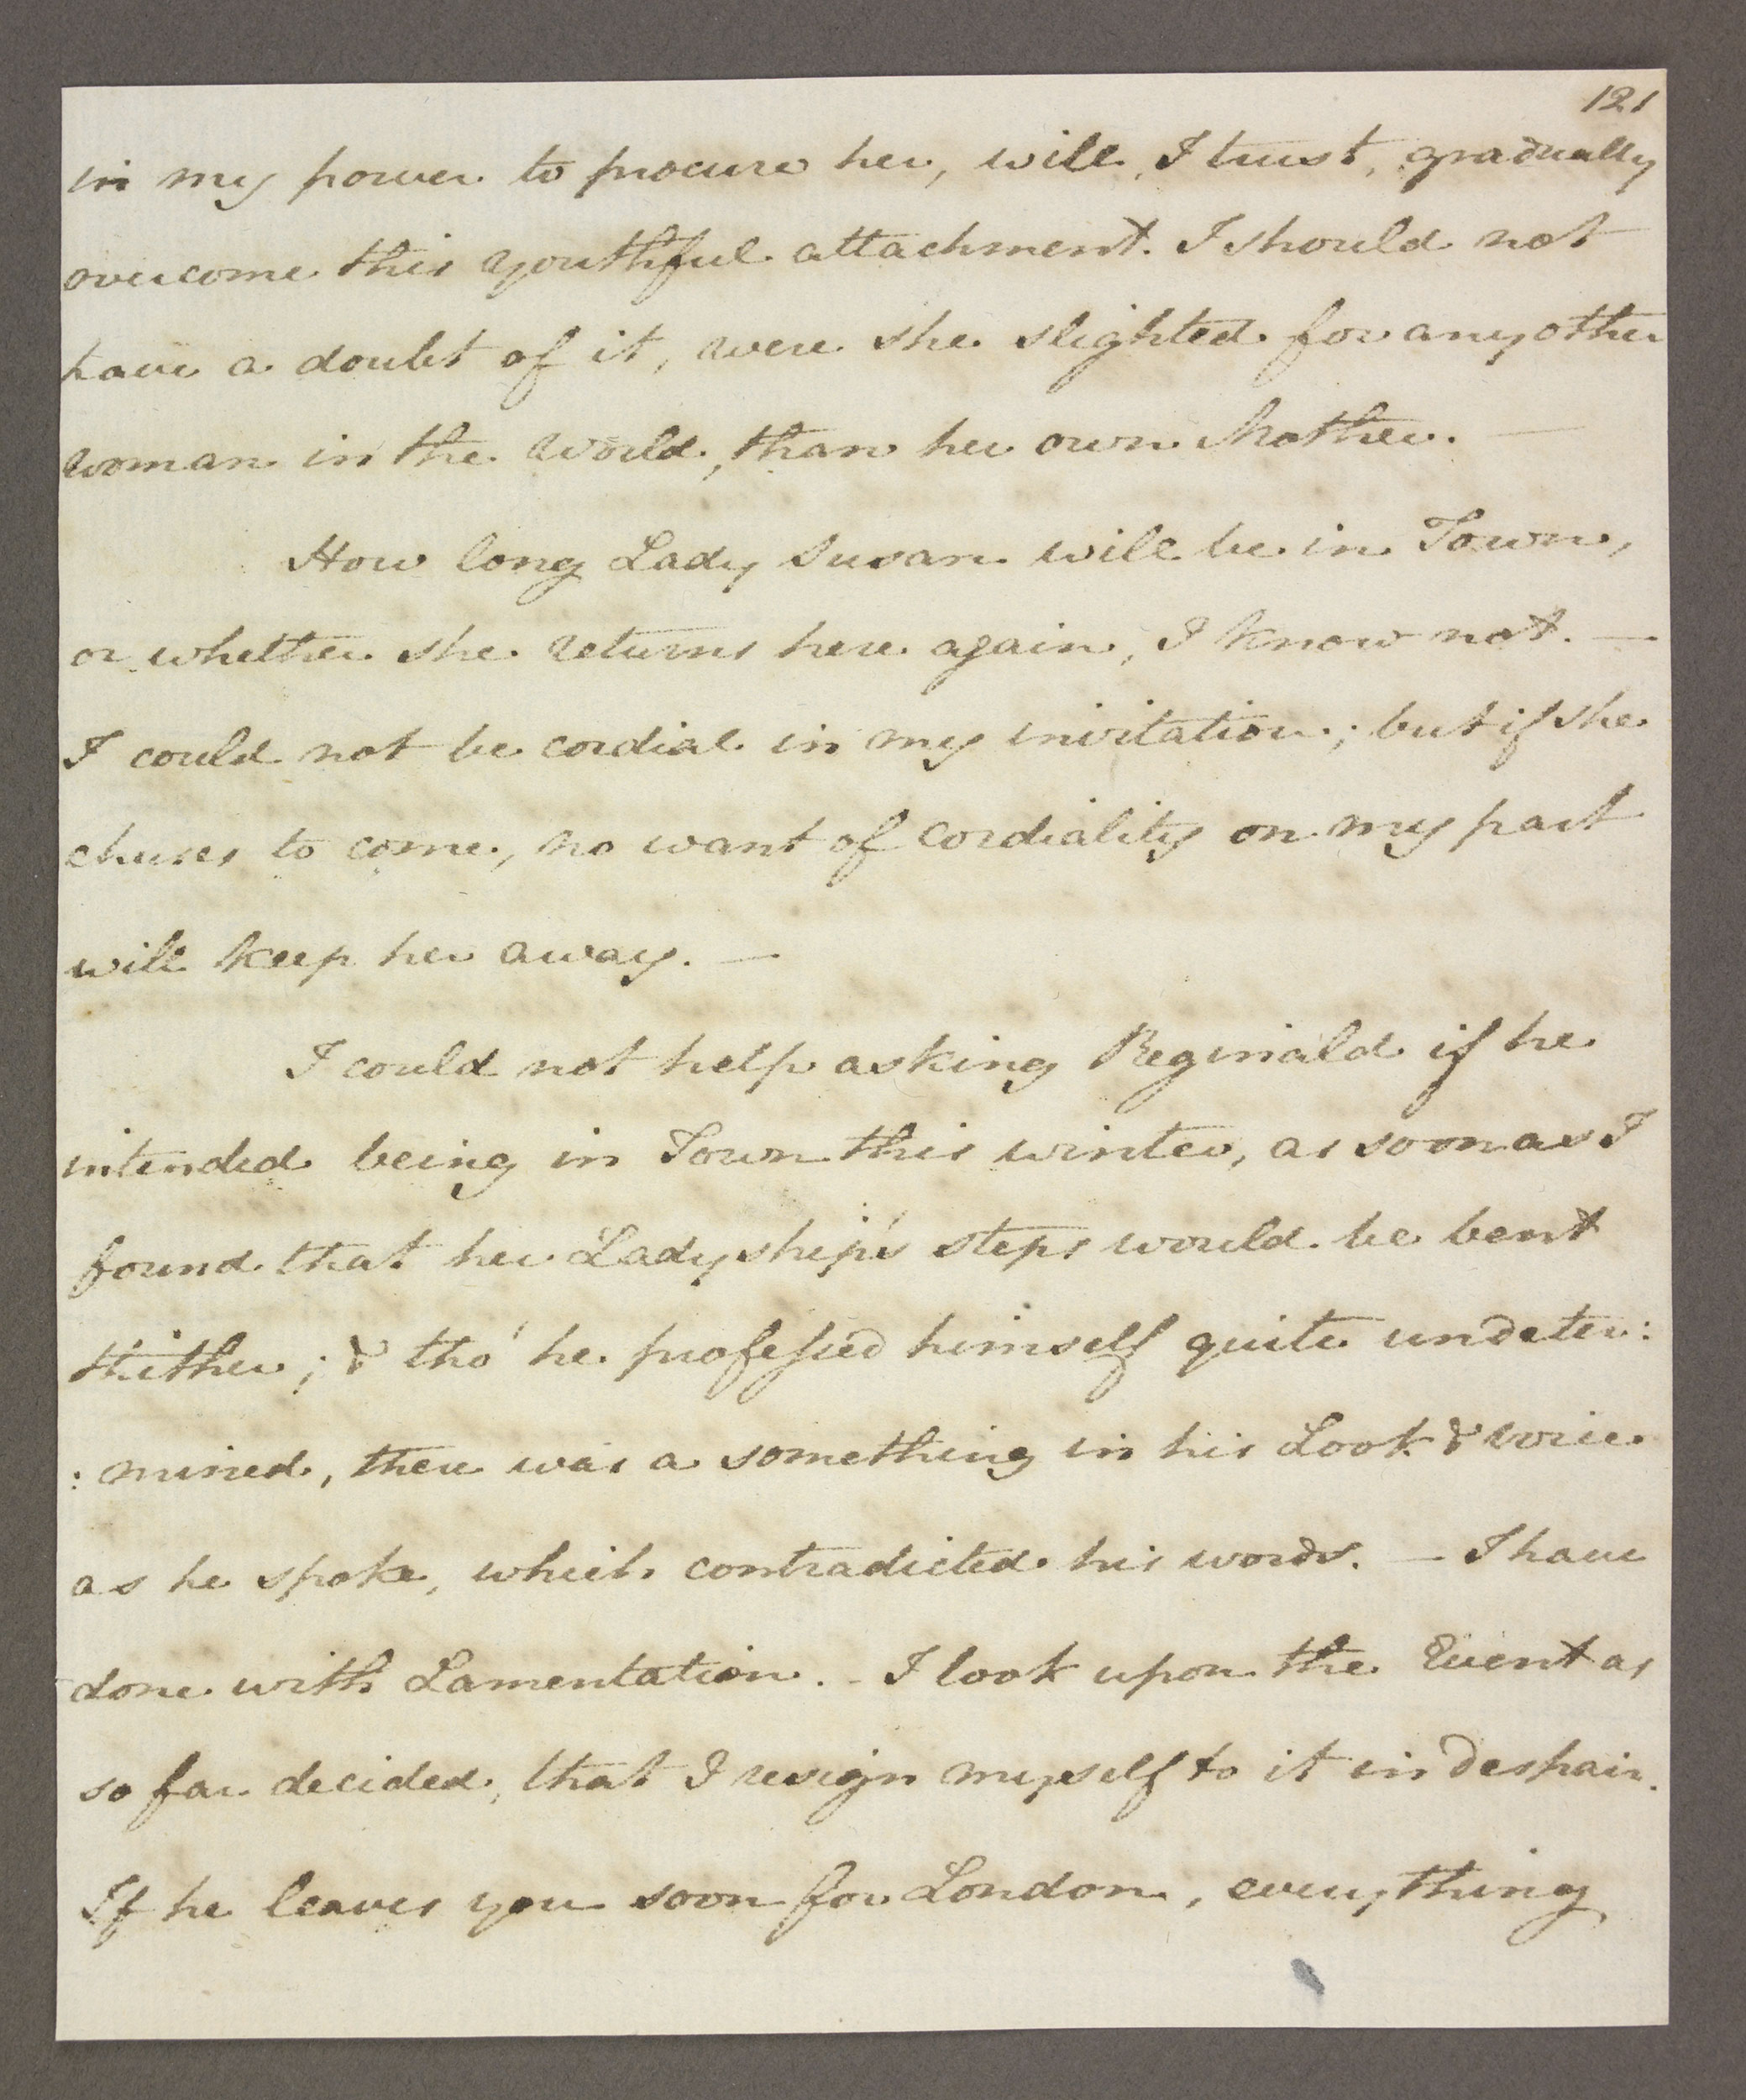 121
in my power to procure her, will, I trust, gradually
overcome this youthful attachment. I should not
have a doubt of it, were she slighted for any other
woman in the World, than her own Mother. —
How long Lady Susan will be in Town,
or whether she returns here again, I know not. —
I could not be cordial in my invitation; but if she
chuses to come, no want of cordiality on my part
will keep her away. —
I could not help asking Reginald if he
intended being in Town this winter, as soon as I
found that her Ladyship's steps would be bent
thither; & tho' he profeſsed himself quite undeter:
:mined, there was a something in his Look & voice
as he spoke, which contradicted his words. — I have
done with Lamentation. - I look upon the Event as
so far decided, that I resign myself to it in despair.
If he leaves you soon for London, everything